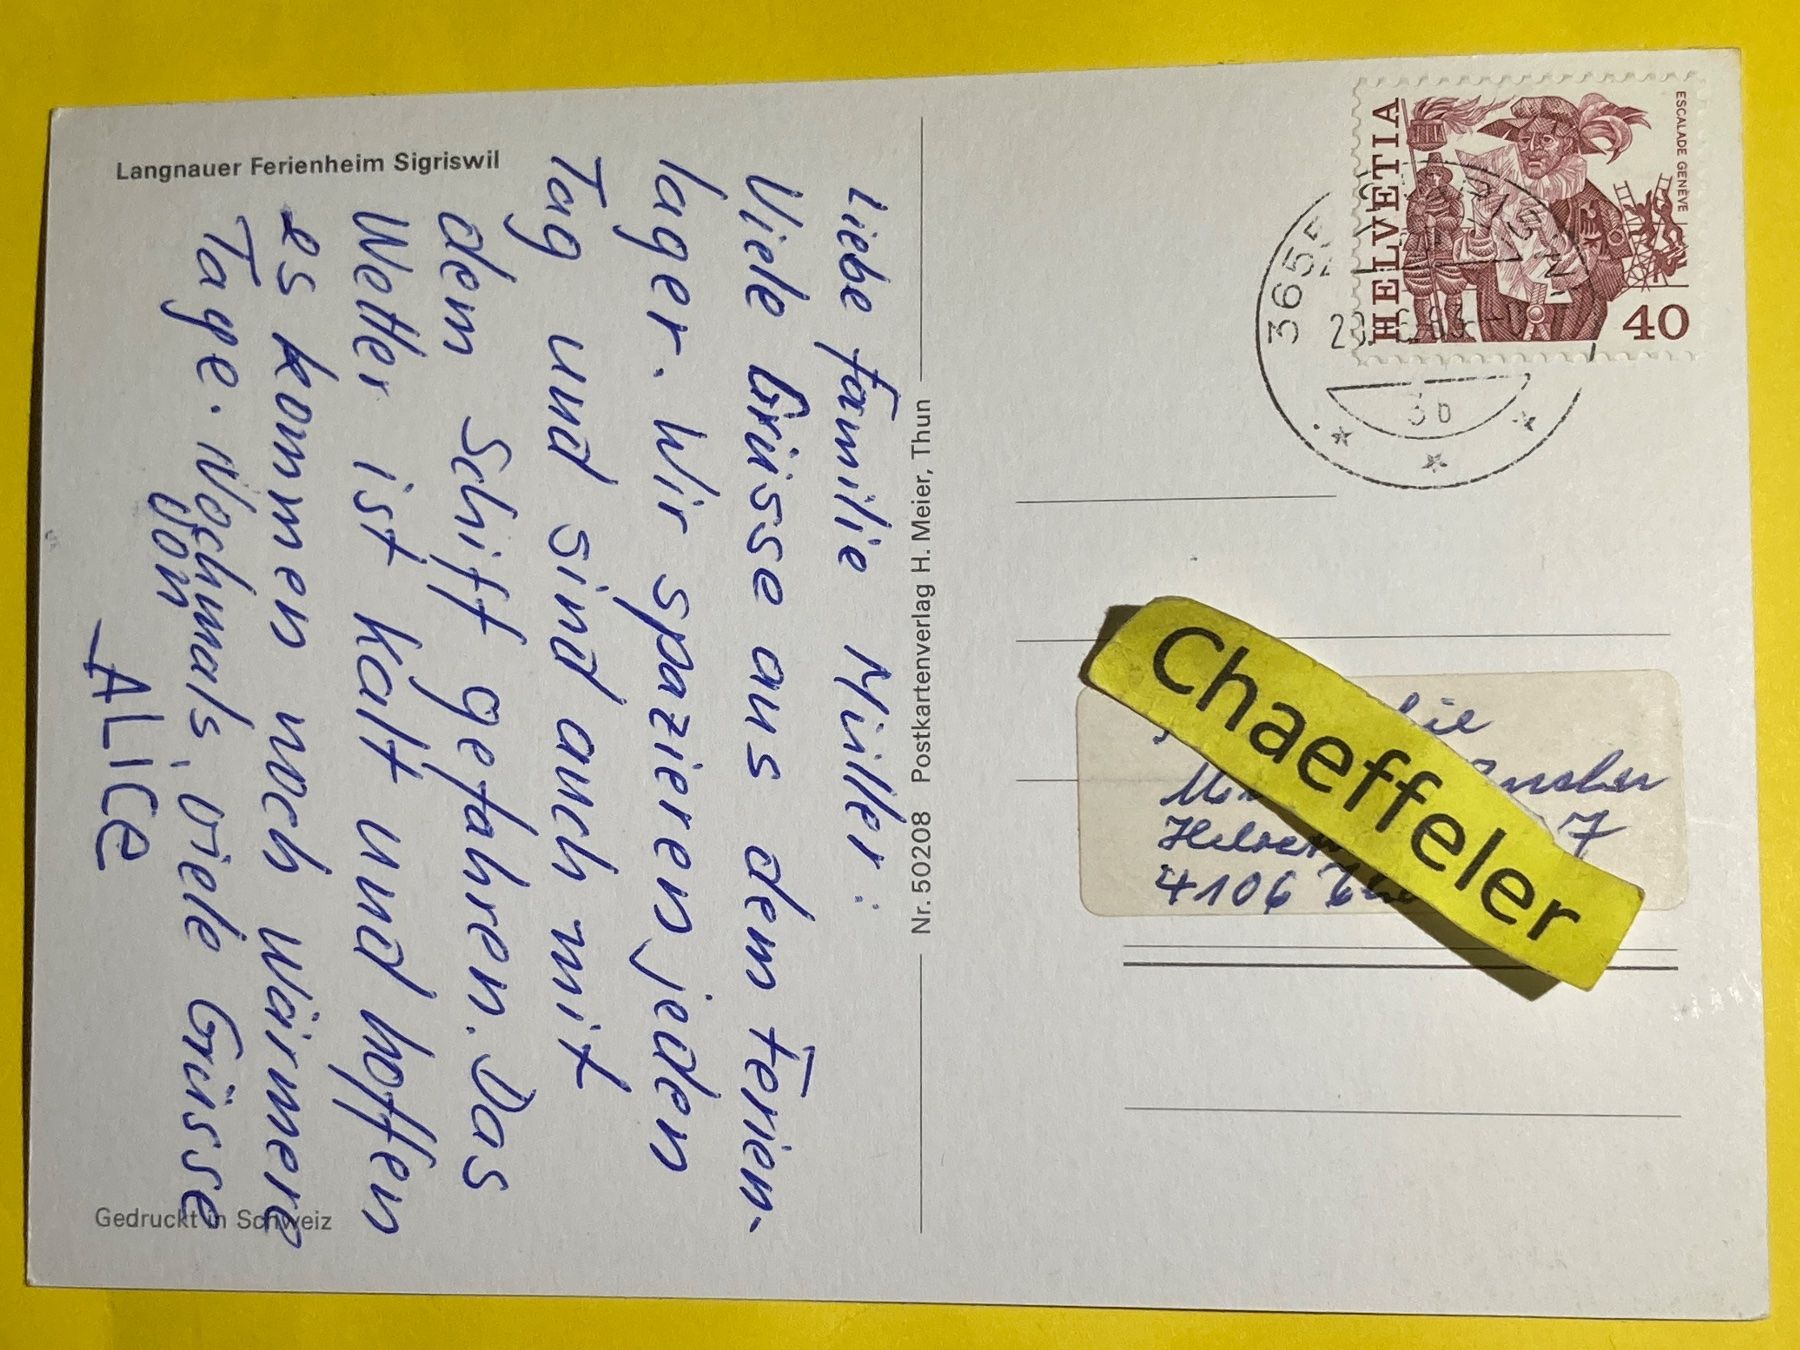 Langnauer Ferienheim Sigriswil
Liebe Familie Müller:
Viele Grüsse aus dem Ferien-
lager. Wir spazieren jeden
Tag und sind auch mit
dem Schiff gefahren. Das
Wetter ist kalt und hoffen
es kommen noch wärmere
Tage. Nochmals viele Grüsse
von
ALiCE
Gedruckt in Schweiz
Nr. 50208 Postkartenverlag H. Meier, Thun
HELVETIA
ESCALADE GENÈVE
40
Chaeffeler
7
4106